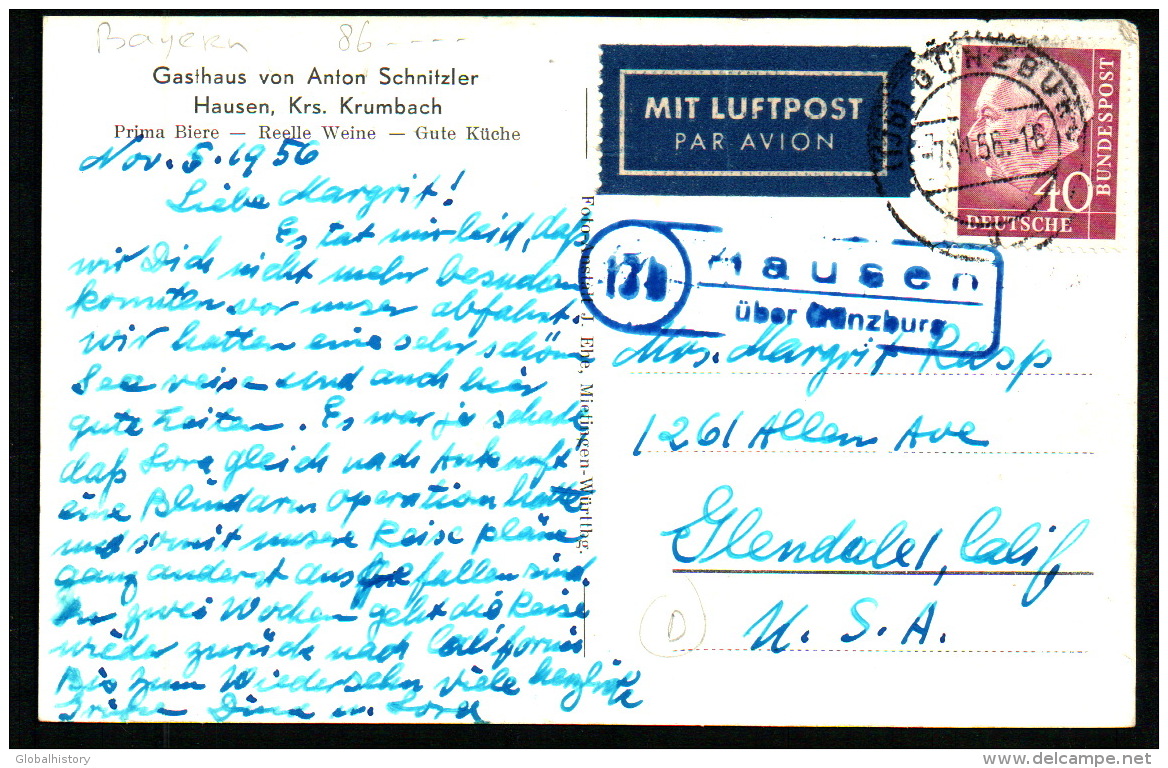 Bayern 86
Gasthaus von Anton Schnitzler
Hausen, Krs. Krumbach
Prima Biere — Reelle Weine — Gute Küche
Nov. 5. 1956
Liebe Margrit!
Es tat mir leid, daß
wir Dich nicht mehr besuchen
konnten vor unser abfahrt.
Wir hatten eine sehr schöne
See reise und auch hier
gute Zeiten. Es war ja schade
daß Lore gleich nach Ankunft
eine Blindarm operation hatte
und somit unsere Reise pläne
ganz anderst ausgefallen sind.
In zwei Wochen geht die Reise
wieder zurück nach California
Bis zum Wiedersehn viele herzliche
Grüße Dina u. Lore
Foto J. Ehe, Mietingen-Württbg.
MIT LUFTPOST
PAR AVION
(13b) GÜNZBURG
-7.11.56.-16
40
DEUTSCHE
BUNDESPOST
13b
Hausen
über Günzburg
Mrs. Margrit Rasp
1261 Allen Ave
Glendale, Calif.
U. S. A.
D
Globalhistory
delcampe.net